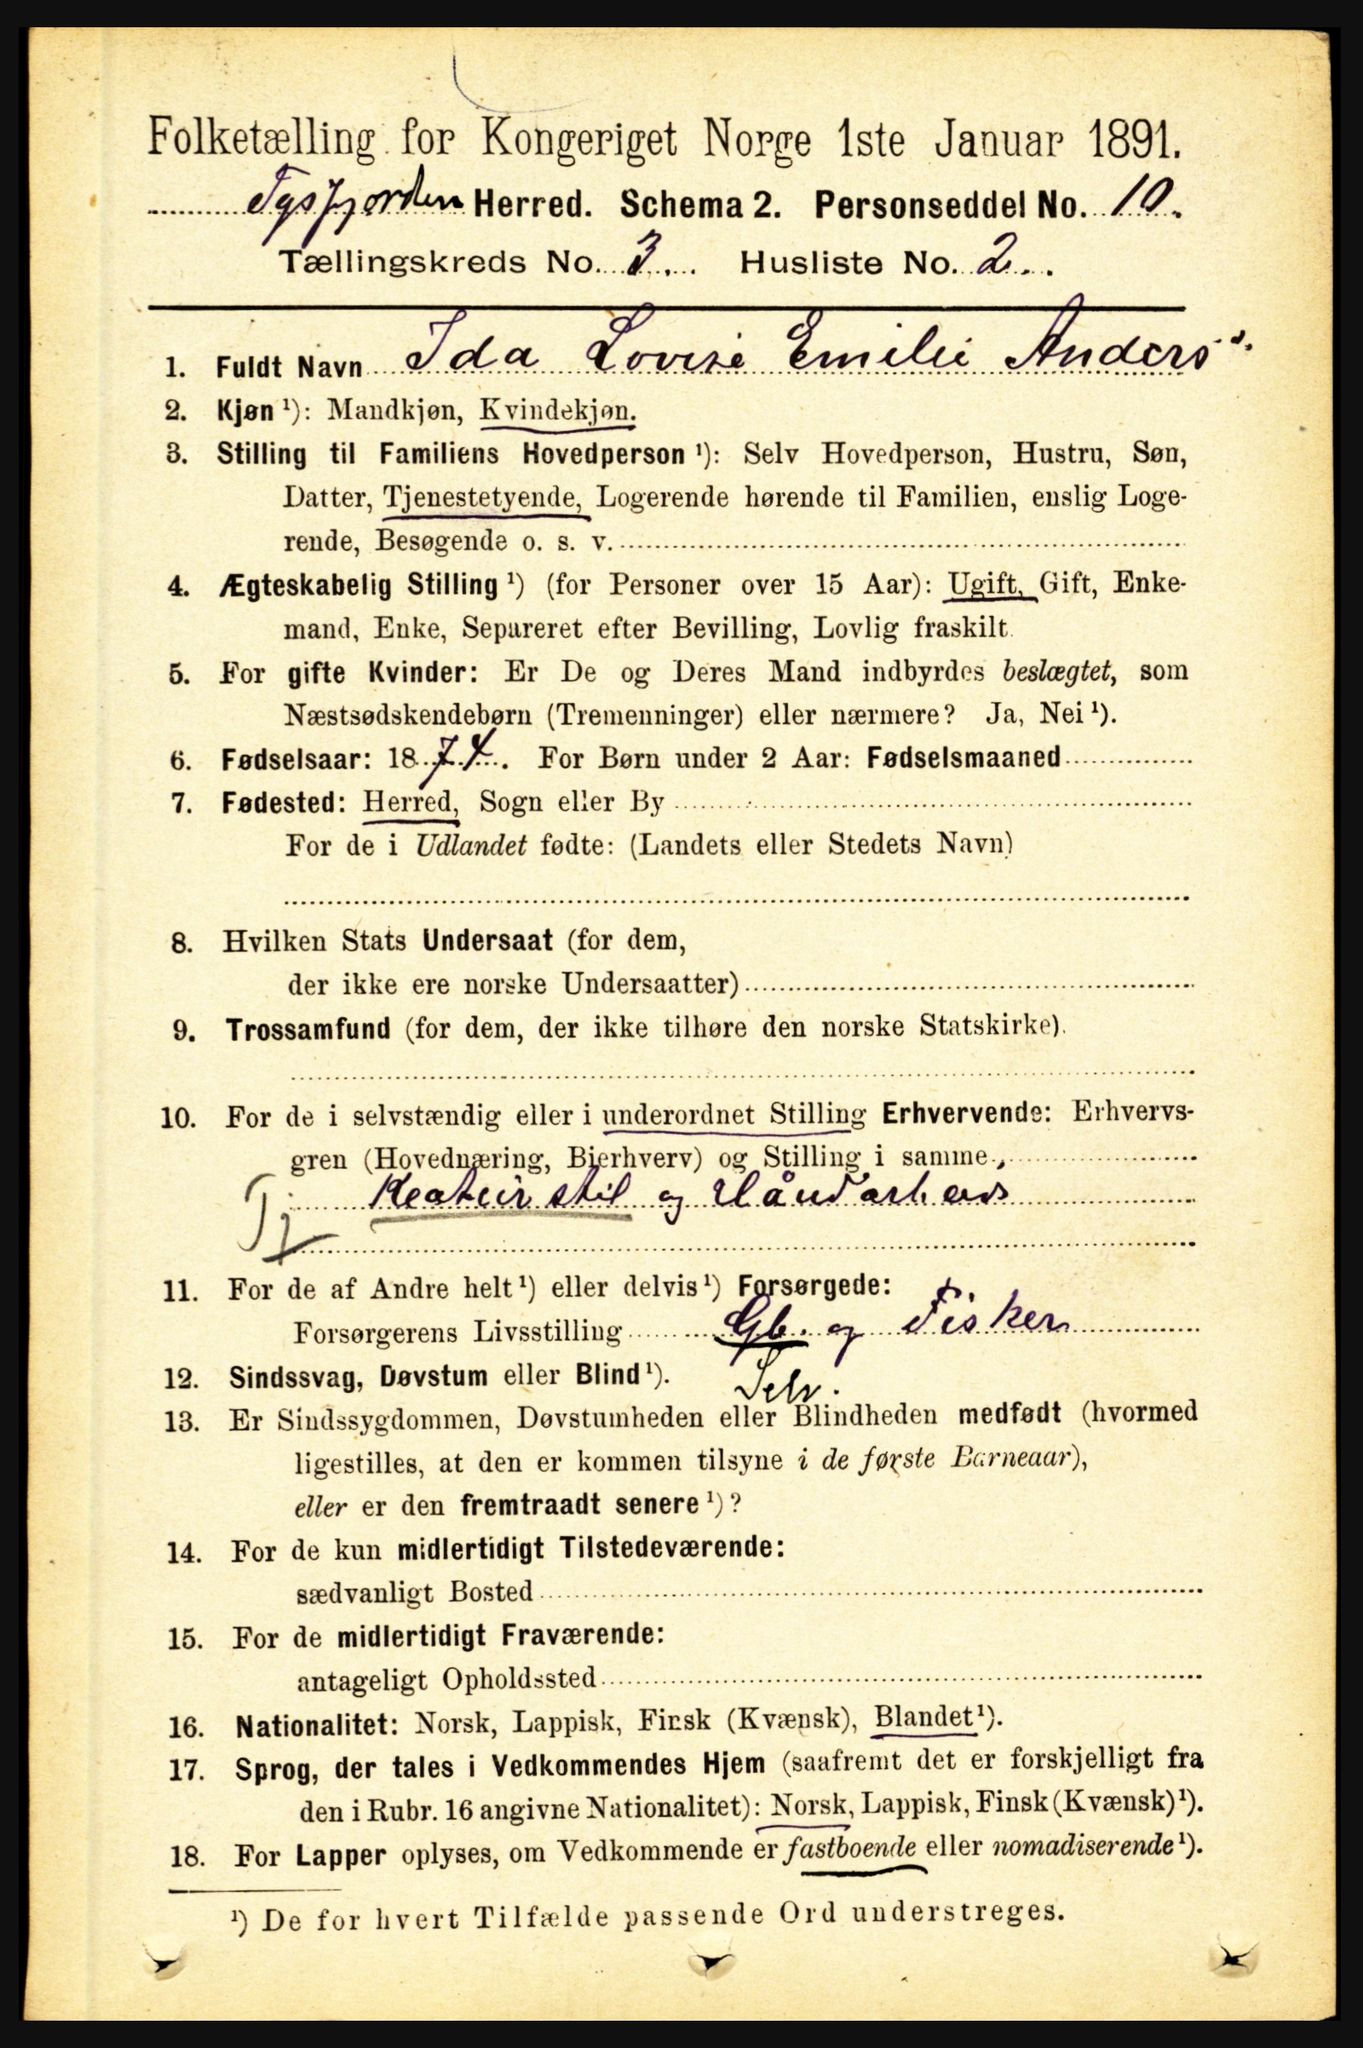 Folketælling for Kongeriget Norge 1ste Januar 1891.
Tysfjorden Herred. Schema 2. Personseddel No. 10.
Tællingskreds No. 3. Husliste No. 2.
1. Fuldt Navn Ida Lovise Emilie Anders
2. Kjøn ¹): Mandkjøn, Kvindekjøn.
3. Stilling til Familiens Hovedperson ¹): Selv Hovedperson, Hustru, Søn,
Datter, Tjenestetyende, Logerende hørende til Familien, enslig Loge-
rende, Besøgende o. s. v.
4. Ægteskabelig Stilling ¹) (for Personer over 15 Aar): Ugift, Gift, Enke-
mand, Enke, Separeret efter Bevilling, Lovlig fraskilt
5. For gifte Kvinder: Er De og Deres Mand indbyrdes beslægtet, som
Næstsødskendebørn (Tremenninger) eller nærmere? Ja, Nei ¹).
6. Fødselsaar: 1874. For Børn under 2 Aar: Fødselsmaaned
7. Fødested: Herred, Sogn eller By
For de i Udlandet fødte: (Landets eller Stedets Navn)
8. Hvilken Stats Undersaat (for dem,
der ikke ere norske Undersaatter)
9. Trossamfund (for dem, der ikke tilhøre den norske Statskirke).
10. For de i selvstændig eller i underordnet Stilling Erhvervende: Erhvervs-
gren (Hovednæring, Bierhverv) og Stilling i samme
Tj. Kreaturstil og Håndarbeids
11. For de af Andre helt ¹) eller delvis ¹) Forsørgede:
Forsørgerens Livsstilling Gb. og Fisker
12. Sindssvag, Døvstum eller Blind ¹). Selv.
13. Er Sindssygdommen, Døvstumheden eller Blindheden medfødt (hvormed
ligestilles, at den er kommen tilsyne i de første Barneaar),
eller er den fremtraadt senere ¹)?
14. For de kun midlertidigt Tilstedeværende:
sædvanligt Bosted
15. For de midlertidigt Fraværende:
antageligt Opholdssted
16. Nationalitet: Norsk, Lappisk, Finsk (Kvænsk), Blandet ¹).
17. Sprog, der tales i Vedkommendes Hjem (saafremt det er forskjelligt fra
den i Rubr. 16 angivne Nationalitet): Norsk, Lappisk, Finsk (Kvænsk) ¹).
18. For Lapper oplyses, om Vedkommende er fastboende eller nomadiserende ¹).
¹) De for hvert Tilfælde passende Ord understreges.